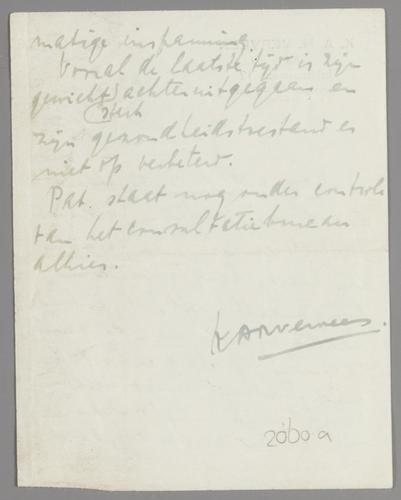 matige inspanning.
Vooral de laatste tijd is zijn
gewicht sterk achteruitgegaan en
zijn gezondheidstoestand er
niet op verbeterd.
Pat. staat nog onder controle
van het consultatiebureau
alhier.
2060a